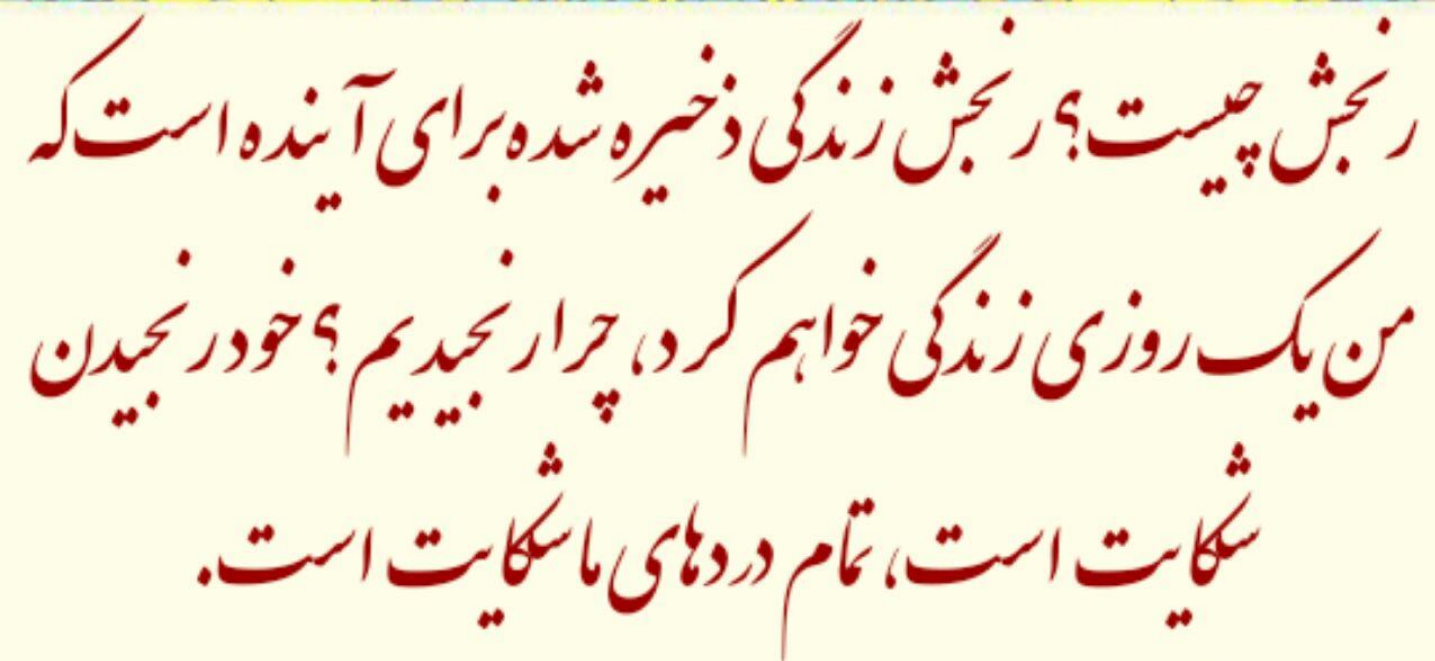 رنجش چیست؟ رنجش زندگی ذخیره شده برای آینده است که
من یک روزی زندگی خواهم کرد، چرا رنجیدیم؟ خود رنجیدن
شکایت است، تمام دردهای ما شکایت است.